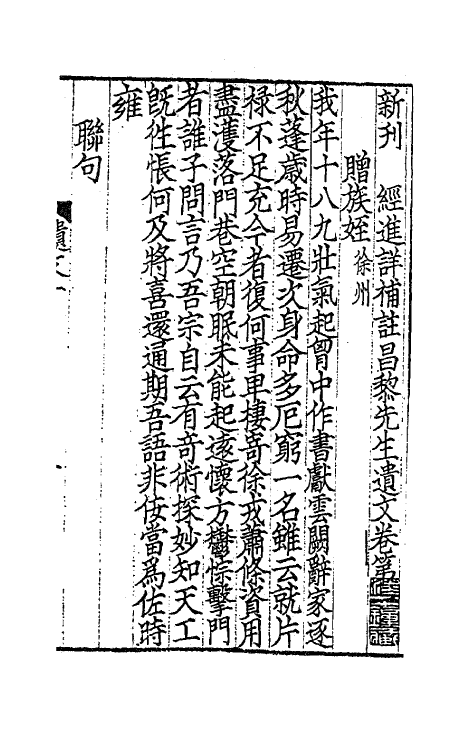 新刊 經進詳補註昌黎先生遺文卷第
贈族姪 徐州
我年十八九壯氣起胷中作書獻雲闕辭家逐
秋蓬歲時易遷次身命多厄窮一名雖云就片
祿不足充今者復何事卑棲寄徐戎蕭條資用
盡濩落門巷空朝眠未能起遠懷方鬱悰擊門
者誰子問言乃吾宗自云有奇術探妙知天工
旣徃悵何及將喜還通期吾語非佞當爲佐時
雍
聯句
遺文一